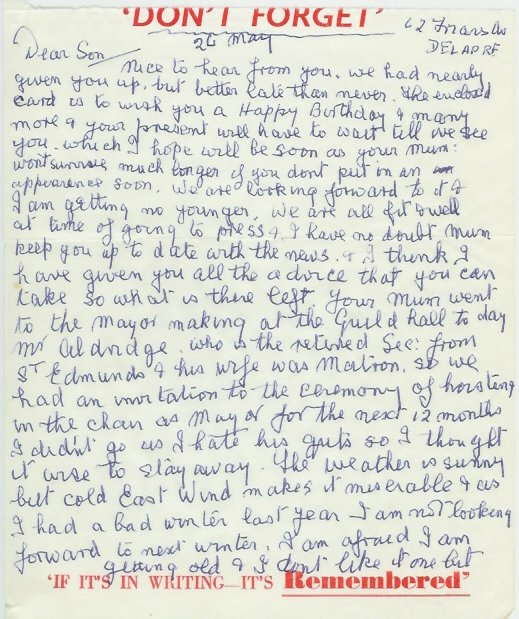 'DON'T FORGET'
62 Friars Av
26 May
DELAPRE
Dear Son
Nice to hear from you. we had nearly
given you up, but better late than never. The enclosed
card is to wish you a Happy Birthday & many
more & your present will have to wait till we see
you. which I hope will be soon as your Mum:
wont survive much longer if you dont put in an
appearance soon. We are looking forward to it &
I am getting no younger. We are all fit & well
at time of going to press & I have no doubt Mum
keep you up to date with the news. & I think I
have given you all the advice that you can
take so what is there left. Your Mum went
to the Mayor making at the Guild hall to day
Mr Aldridge. who is the retired Sec: from
St Edmunds & his wife was Matron. so we
had an invitation to the ceremony of hoisting
in the chair as Mayor for the next 12 months
I didn't go as I hate his guts so I thought
it wise to stay away. The weather is sunny
but cold East Wind makes it miserable & as
I had a bad winter last year I am not looking
forward to next winter. I am afraid I am
getting old & I dont like it one bit
'IF IT'S IN WRITING—IT'S Remembered'